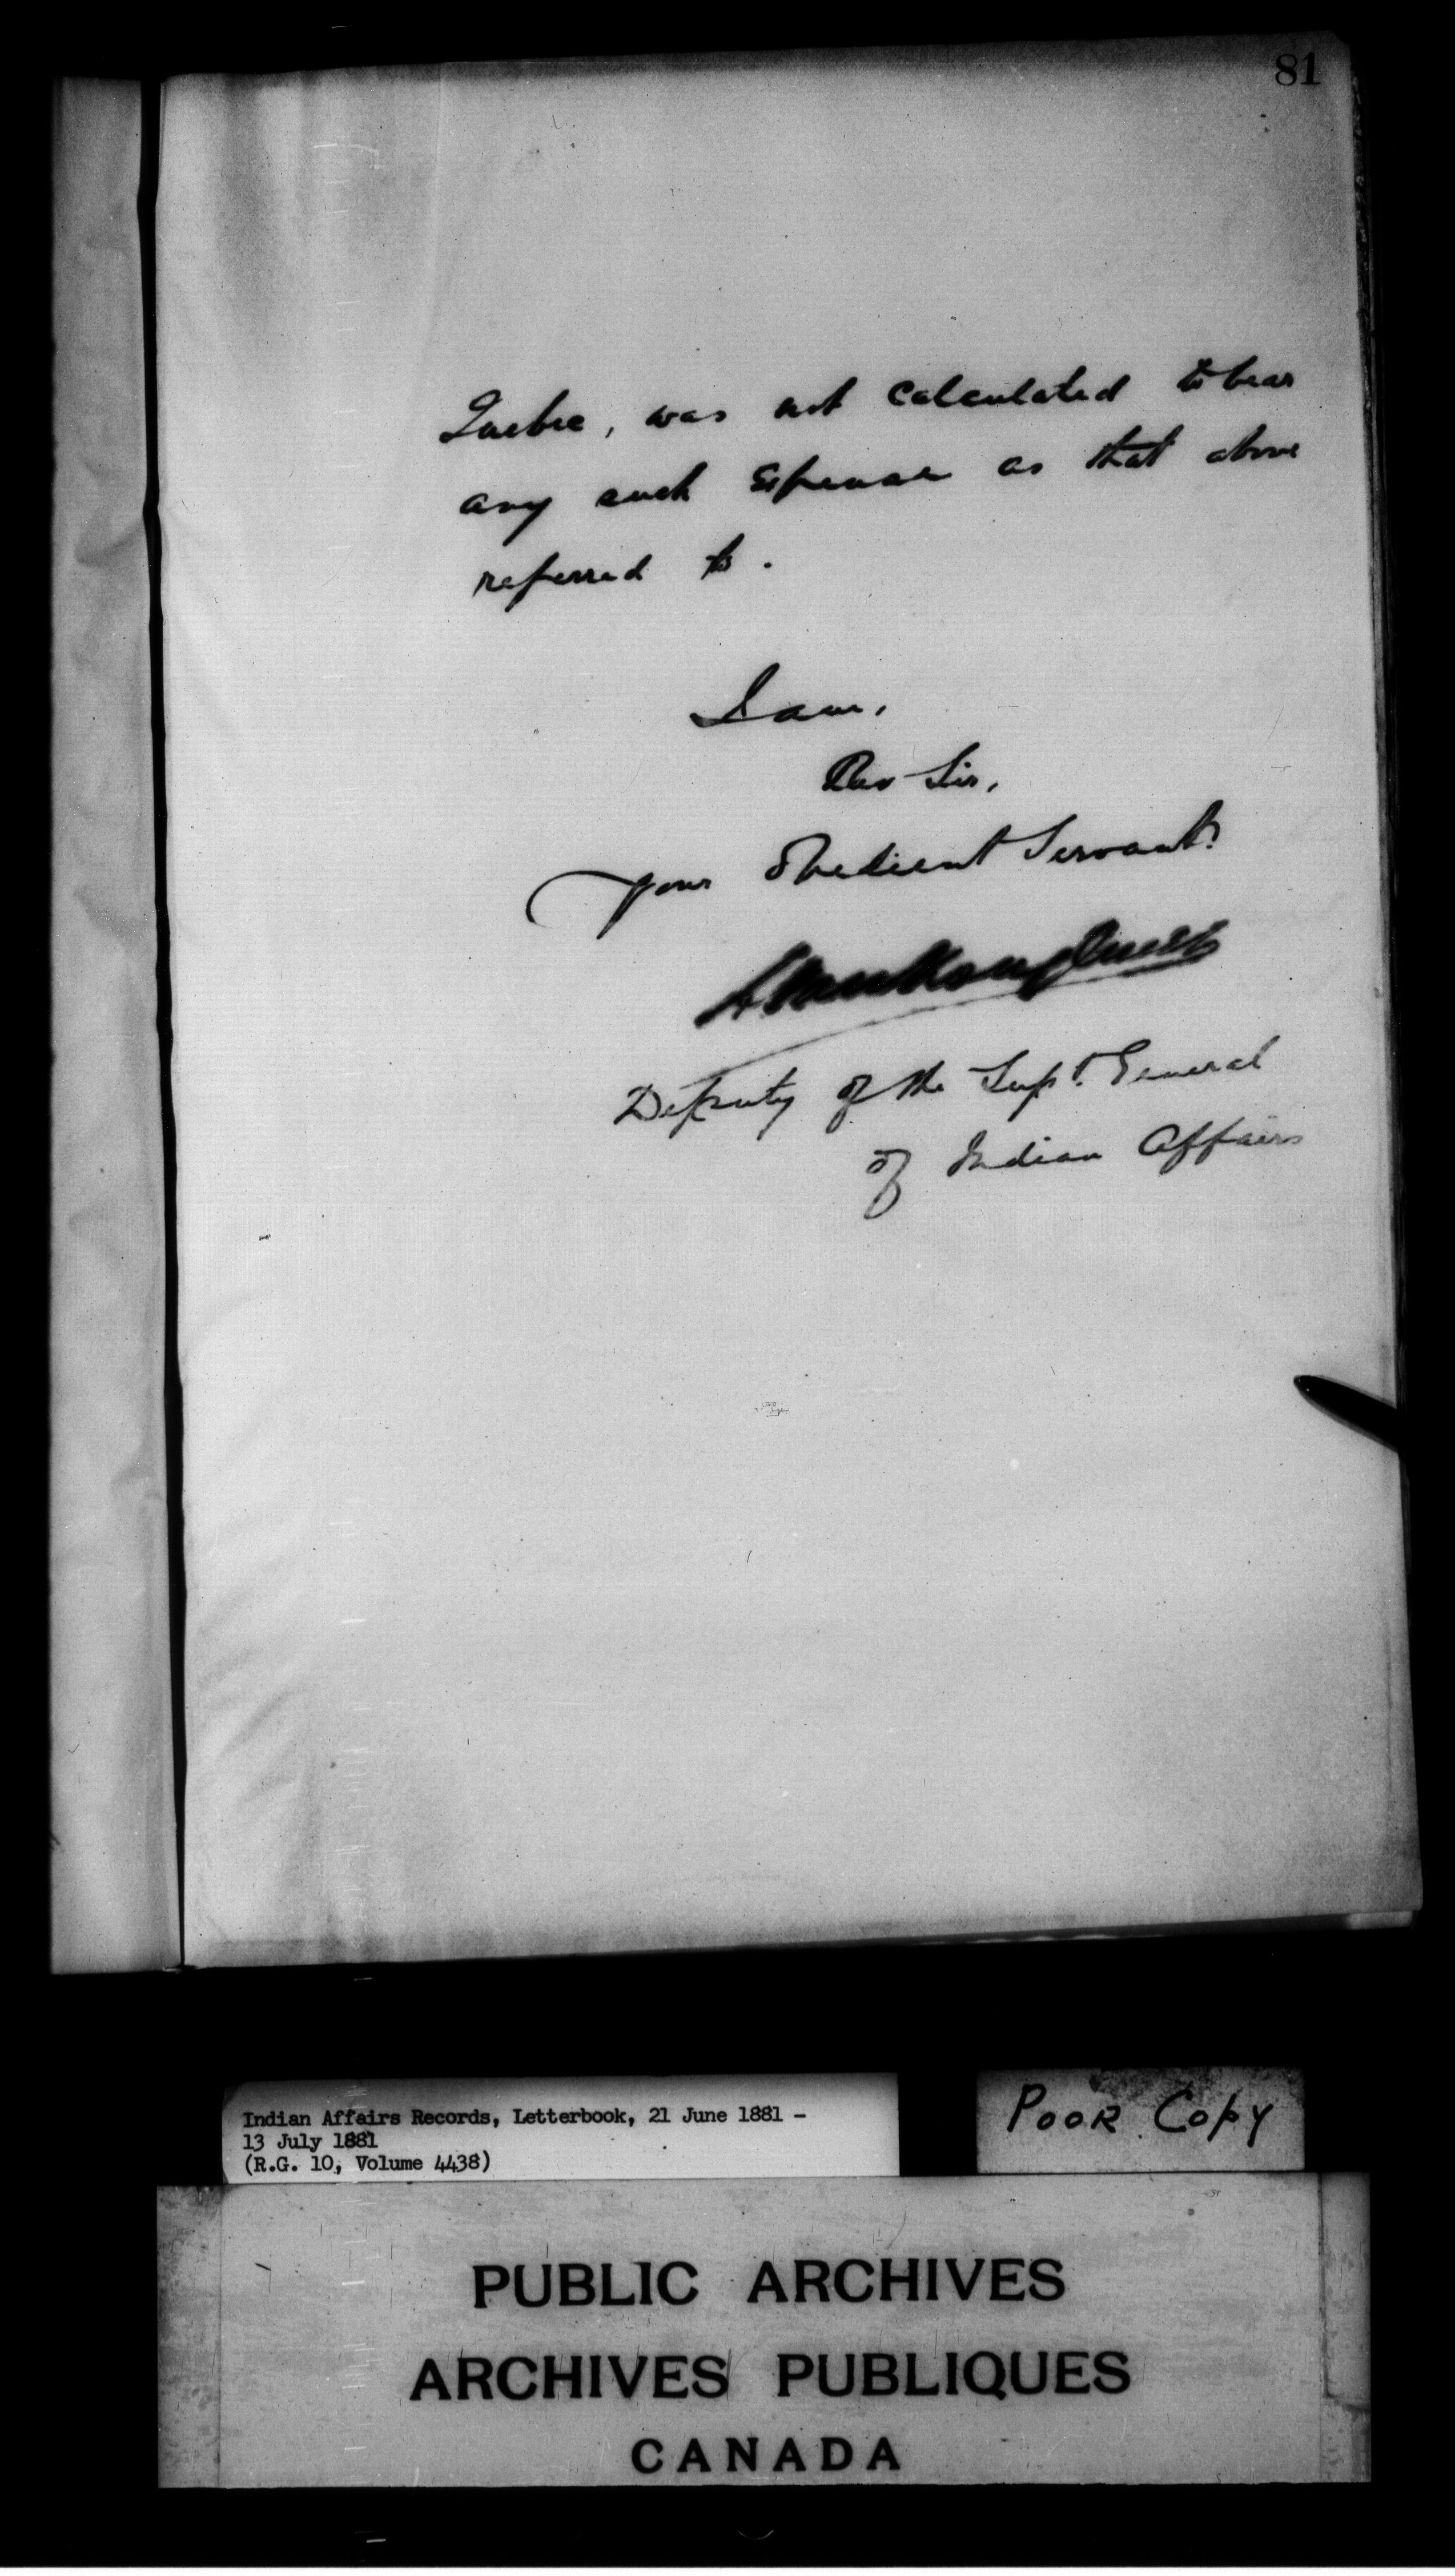 81
Quebec, was not calculated to bear
any such Expense as that above
referred to.
I am,
Rev Sir,
your Obedient Servant
L VanKoughnet
Deputy of the Supt. General
of Indian Affairs
Indian Affairs Records, Letterbook, 21 June 1881 -
13 July 1881
(R.G. 10, Volume 4438)
POOR COPY
PUBLIC ARCHIVES
ARCHIVES PUBLIQUES
CANADA